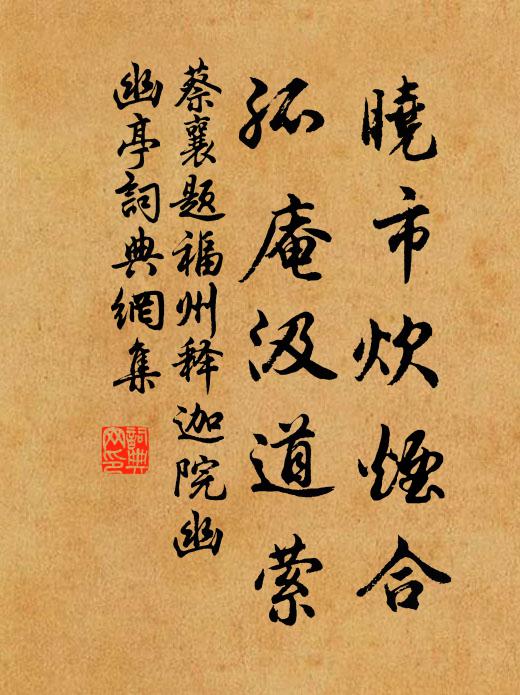 曉市炊煙合
孤庵汲道萦
蔡襄題福州释迦院幽
幽亭詞典網集
詞典
网印